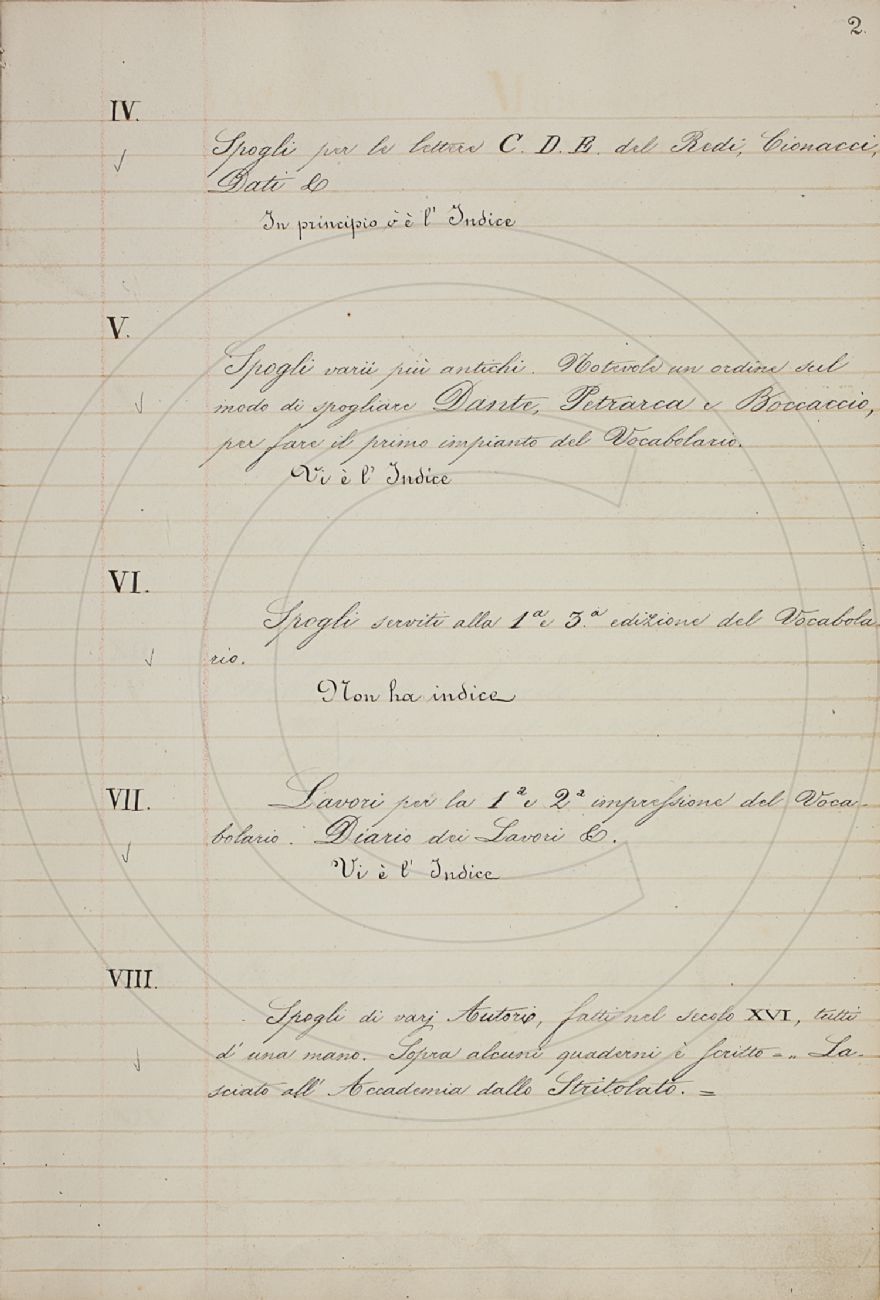 2.
IV.
Spogli per le lettere C. D. E. del Redi, Cionacci,
Dati &
In principio v'è l' Indice
V.
Spogli varii più antichi. Notevole un ordine sul
modo di spogliare Dante, Petrarca e Boccaccio,
per fare il primo impianto del Vocabolario.
Vi è l' Indice
VI.
Spogli serviti alla 1ª e 3.ª edizione del Vocabola-
rio.
Non ha indice
VII.
Lavori per la 1ª e 2ª impressione del Voca-
bolario. Diario dei Lavori &.
Vi è l' Indice
VIII.
Spogli di varj Autori, fatti nel secolo XVI, tutti
d' una mano. Sopra alcuni quaderni è scritto = „ La-
sciato all' Accademia dallo Stritolato. =